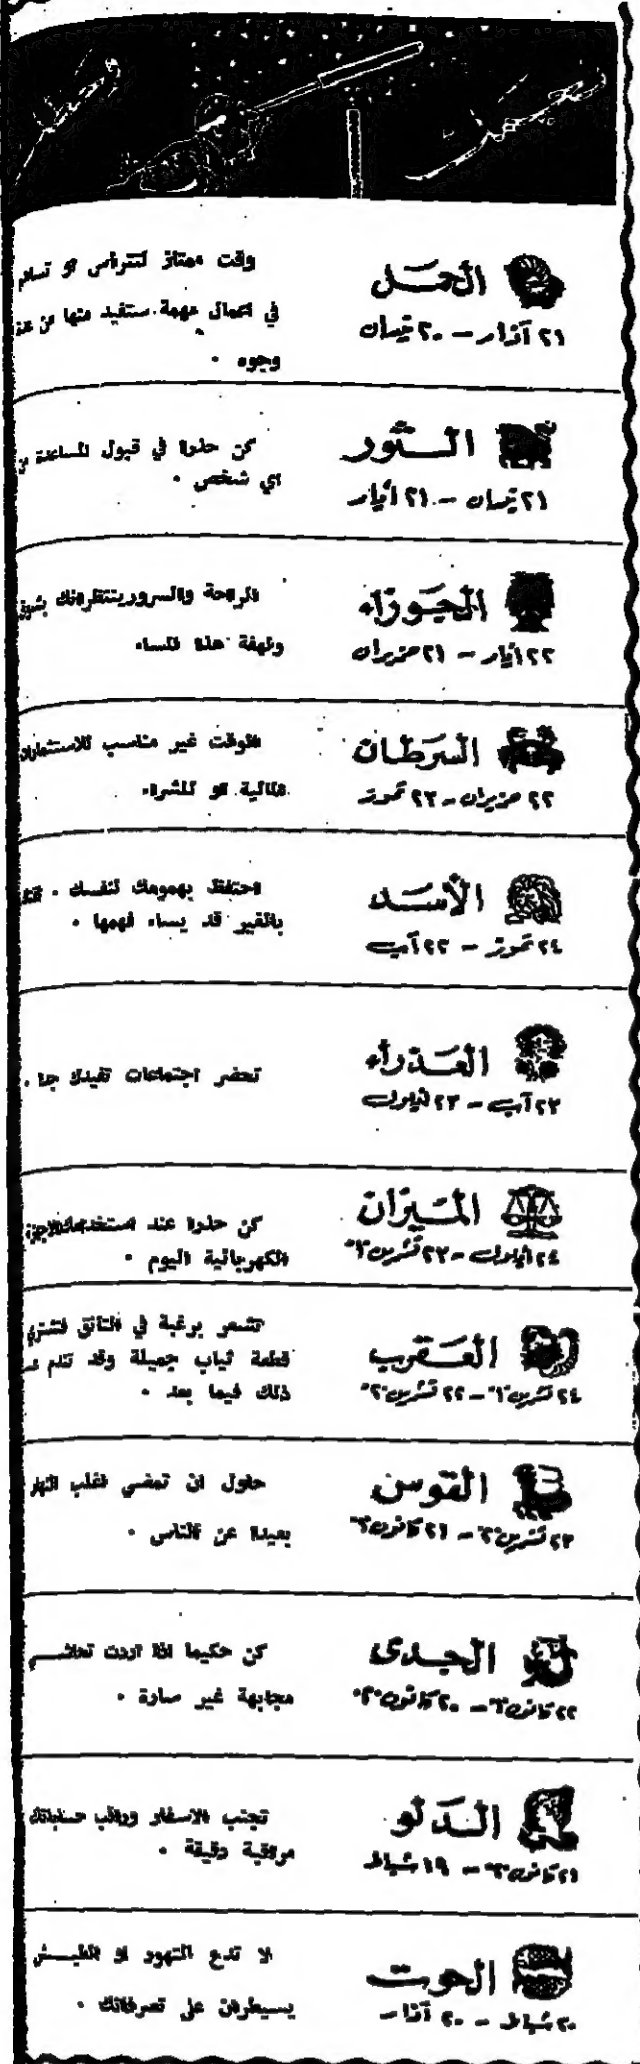 الحمل
٢١ آذار - ٢٠ نيسان
وقت ممتاز لتترأس او تساهم
في اعمال مهمة ستفيد منها من
وجوه .
الثور
٢١ نيسان - ٢١ أيار
كن حذرا في قبول المساعدة من
اي شخص .
الجوزاء
٢٢ أيار - ٢١ حزيران
الراحة والسرور ينتظرانك بشوق
ولهفة هذا المساء
السرطان
٢٢ حزيران - ٢٣ تموز
الوقت غير مناسب للاستثمارات
المالية او للشراء.
الأسد
٢٤ تموز - ٢٢ آب
احتفظ بهمومك لنفسك .
بالغير قد يساء فهمها .
العذراء
٢٣ آب - ٢٣ أيلول
تحضر اجتماعات تفيدك جدا .
الميزان
٢٤ أيلول - ٢٣ تشرين ١
كن حذرا عند استخدامك الاجهزة
الكهربائية اليوم .
العقرب
٢٤ تشرين ١ - ٢٢ تشرين ٢
تشعر برغبة في التانق فتشتري
قطعة ثياب جميلة وقد تندم
ذلك فيما بعد .
القوس
٢٣ تشرين ٢ - ٢١ كانون
حاول ان تمضي اغلب النهار
بعيدا عن الناس .
الجدي
٢٢ كانون - ٢٠ كانون ٢
كن حكيما اذا اردت تحاشي
مجابهة غير سارة .
الدلو
٢١ كانون ٢ - ١٩ شباط
تجنب الاسفار وراقب حساباتك
مراقبة دقيقة .
الحوت
٢٠ شباط - ٢٠ آذار
لا تدع التهور او الطيش
يسيطران على تصرفاتك .